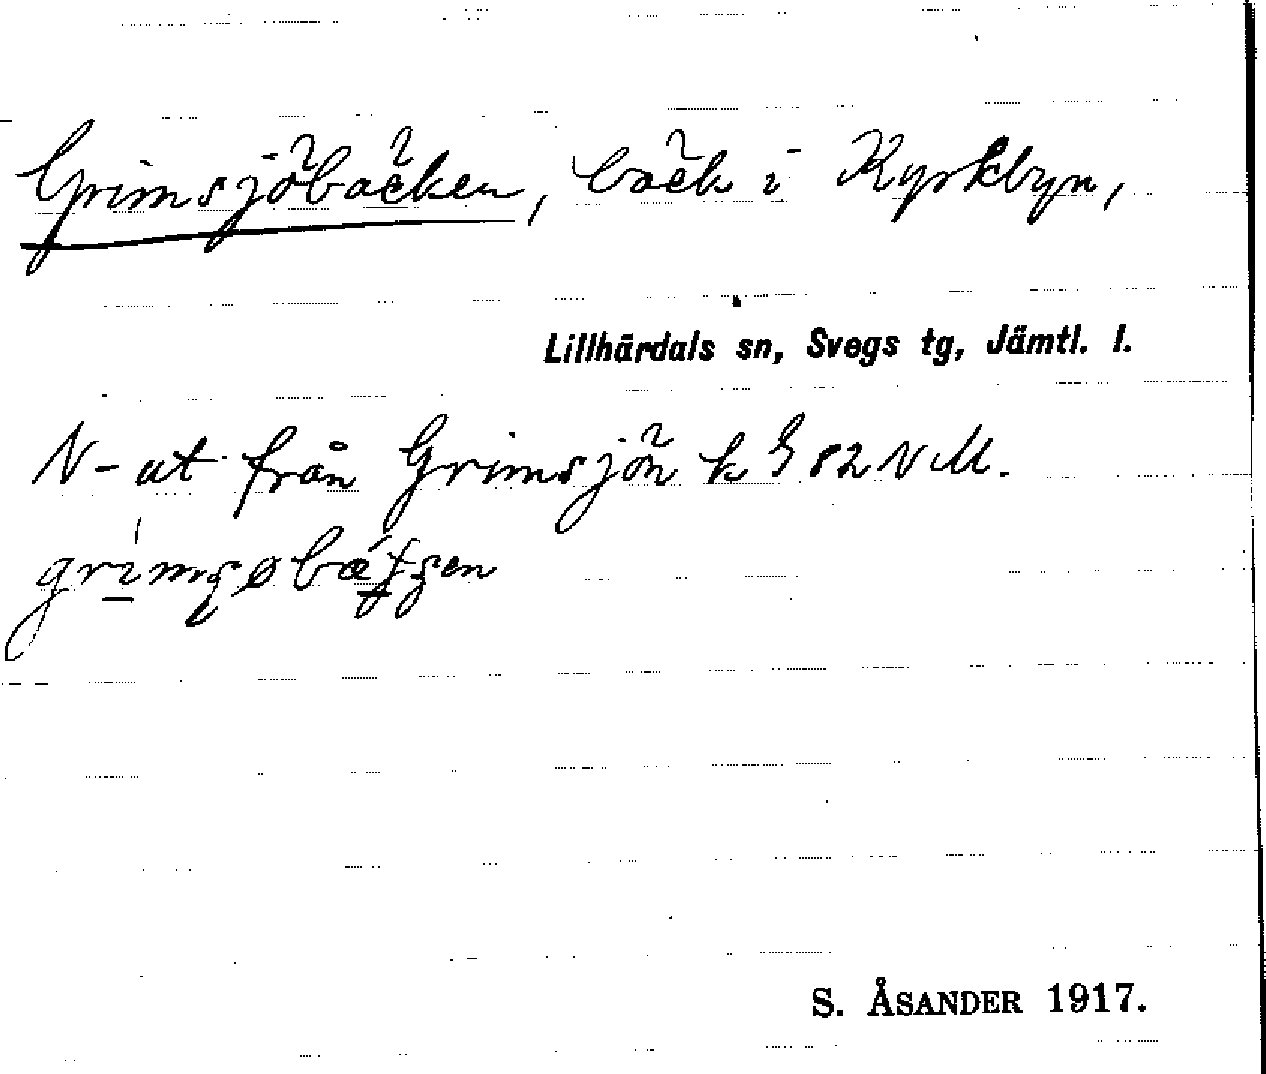 Grimsjöbäcken, bäck i Kyrkbyn,
Lillhärdals sn, Svegs tg, Jämtl. l.
N-ut från Grimsjön k § 82 N M.
S. ÅSANDER 1917.